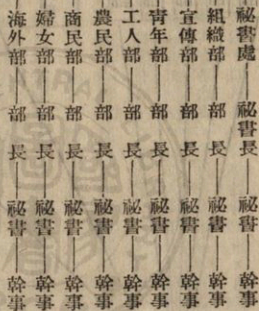 祕書處——祕書長——祕書——幹事
組織部——部長——祕書——幹事
宣傳部——部長——祕書——幹事
青年部——部長——祕書——幹事
工人部——部長——祕書——幹事
農民部——部長——祕書——幹事
商民部——部長——祕書——幹事
婦女部——部長——祕書——幹事
海外部——部長——祕書——幹事